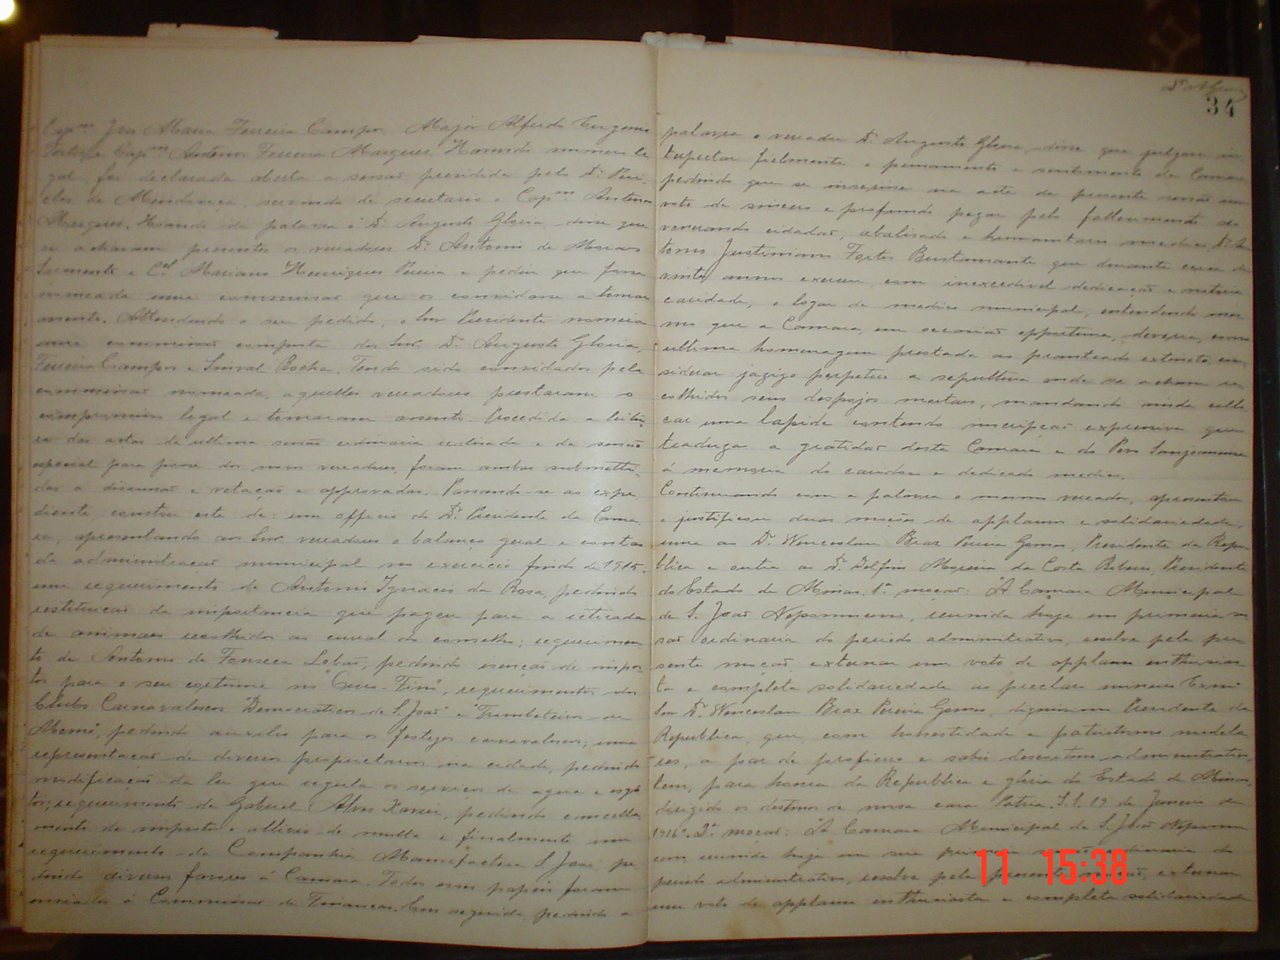 Cap.m José Maria Ferreira Campos, Major Alfredo Eugenio
Fortes e Cap.m Antenor Ferreira Marques. Havendo numero le
gal, foi declarada aberta a sessão presidida pelo Dr. Peri
cles de Mendonça, servindo de secretario o Cap.m Antenor
Marques. Usando da palavra o Dr. Augusto Gloria, disse que
se achavam presentes os vereadores Dr. Antonio de Moraes
Sarmento e C.el Mariano Henriques Pereira e pediu que fosse
nomeada uma commissão que os convidasse a tomar
assento. Attendendo a seu pedido, o Snr. Presidente nomeia
uma commissão composta dos Snrs. Dr. Augusto Gloria,
Ferreira Campos e Rocha. Tendo sido convidados pela
commissão nomeada, aquelles vereadores prestaram o
compromisso legal e tomaram assento. Procedida a leitu
ra das actas da ultima sessão ordinaria realisada e da sessão
especial para posse dos novos vereadores, foram ambas submetti
das a discussão e votação e approvadas. Passando-se ao expe
diente constou este de: um officio do Dr. Presidente da Cama
ra, apresentando aos Snrs. vereadores o balanço geral e contas
da administração municipal no exercicio findo de 1915;
um requerimento de Antonio Ignacio da Rosa, pedindo
restituição da importancia que pagou para a retirada
de animaes recolhidos ao curral do conselho; requerimen
to de Antonio da Fonseca Lobão, pedindo isenção de impos
tos para o seu cortume no "Cura-Tim", requerimentos dos
Clubs Carnavalescos "Democraticos de S. João" e "Trombeteiros de
Momo", pedindo auxilio para os festejos carnavalescos; uma
representação de diversos proprietarios na cidade, pedindo
modificação da lei que regula os serviços de agua e esgo
tos; requerimento de Gabriel Alves Xavier, pedindo cancella
mento de imposto e allivio de multa e finalmente um
requerimento da Companhia Manufactora S. João, pe
dindo diversos favores á Camara. Todos esses papeis foram
enviados á Commissão de Finanças. Em seguida, pedindo a
34
palavra o vereador Dr. Augusto Gloria, disse que julgava in
terpretar fielmente o pensamento e sentimento da Camara,
pedindo que se inserisse na acta da presente sessão um
voto de sincero e profundo pezar pelo fallecimento do
venerando cidadão, abalisado e humanitario medico, Dr. An
tonio Justiniano Fortes Bustamante que durante cerca de
vinte annos exerceu, com inexcedivel dedicação e notoria
caridade, o logar de medico municipal, entendendo mes
mo que a Camara, em occasião opportuna, deveria, como
ultima homenagem prestada ao pranteado extincto, con
siderar jazigo perpetuo a sepultura onde se acham re
colhidos seus despojos mortaes, mandando ainda collo
car uma lapide contendo inscripção expressiva que
traduza a gratidão desta Camara e do Povo Sanjoanense
á memoria do caridoso e dedicado medico.
Continuando com a palavra o mesmo vereador, apresentou
e justificou duas moções de applauso e solidariedade,
uma ao Dr. Wenceslau Braz Pereira Gomes, Presidente da Repu
blica e outra ao Dr. Delfim Moreira da Costa Ribeiro, Presidente
do Estado de Minas. 1ª moção: "A Camara Municipal
de S. João Nepomuceno, reunida hoje em primeira ses
são ordinaria do periodo administrativo, resolve pela pre
sente moção, externar um voto de applauso enthusias
ta e completa solidariedade ao preclaro mineiro Exmo
Snr. Dr. Wenceslau Braz Pereira Gomes, dignissimo Presidente da
Republica, que, com honestidade e patriotismo modela
res, a par de proficuo e sabio descortino administrativo
tem, para honra da Republica e gloria do Estado de Minas
dirigido os destinos de nossa cara Patria. S.S. 19 de Janeiro de
1916". 2ª moção: "A Camara Municipal de S. João Nepomu
ceno reunida hoje em sua primeira sessão ordinaria do
periodo administrativo, resolve pela presente moção, externar
um voto de applauso enthusiasta e completa solidariedade
11 15:38